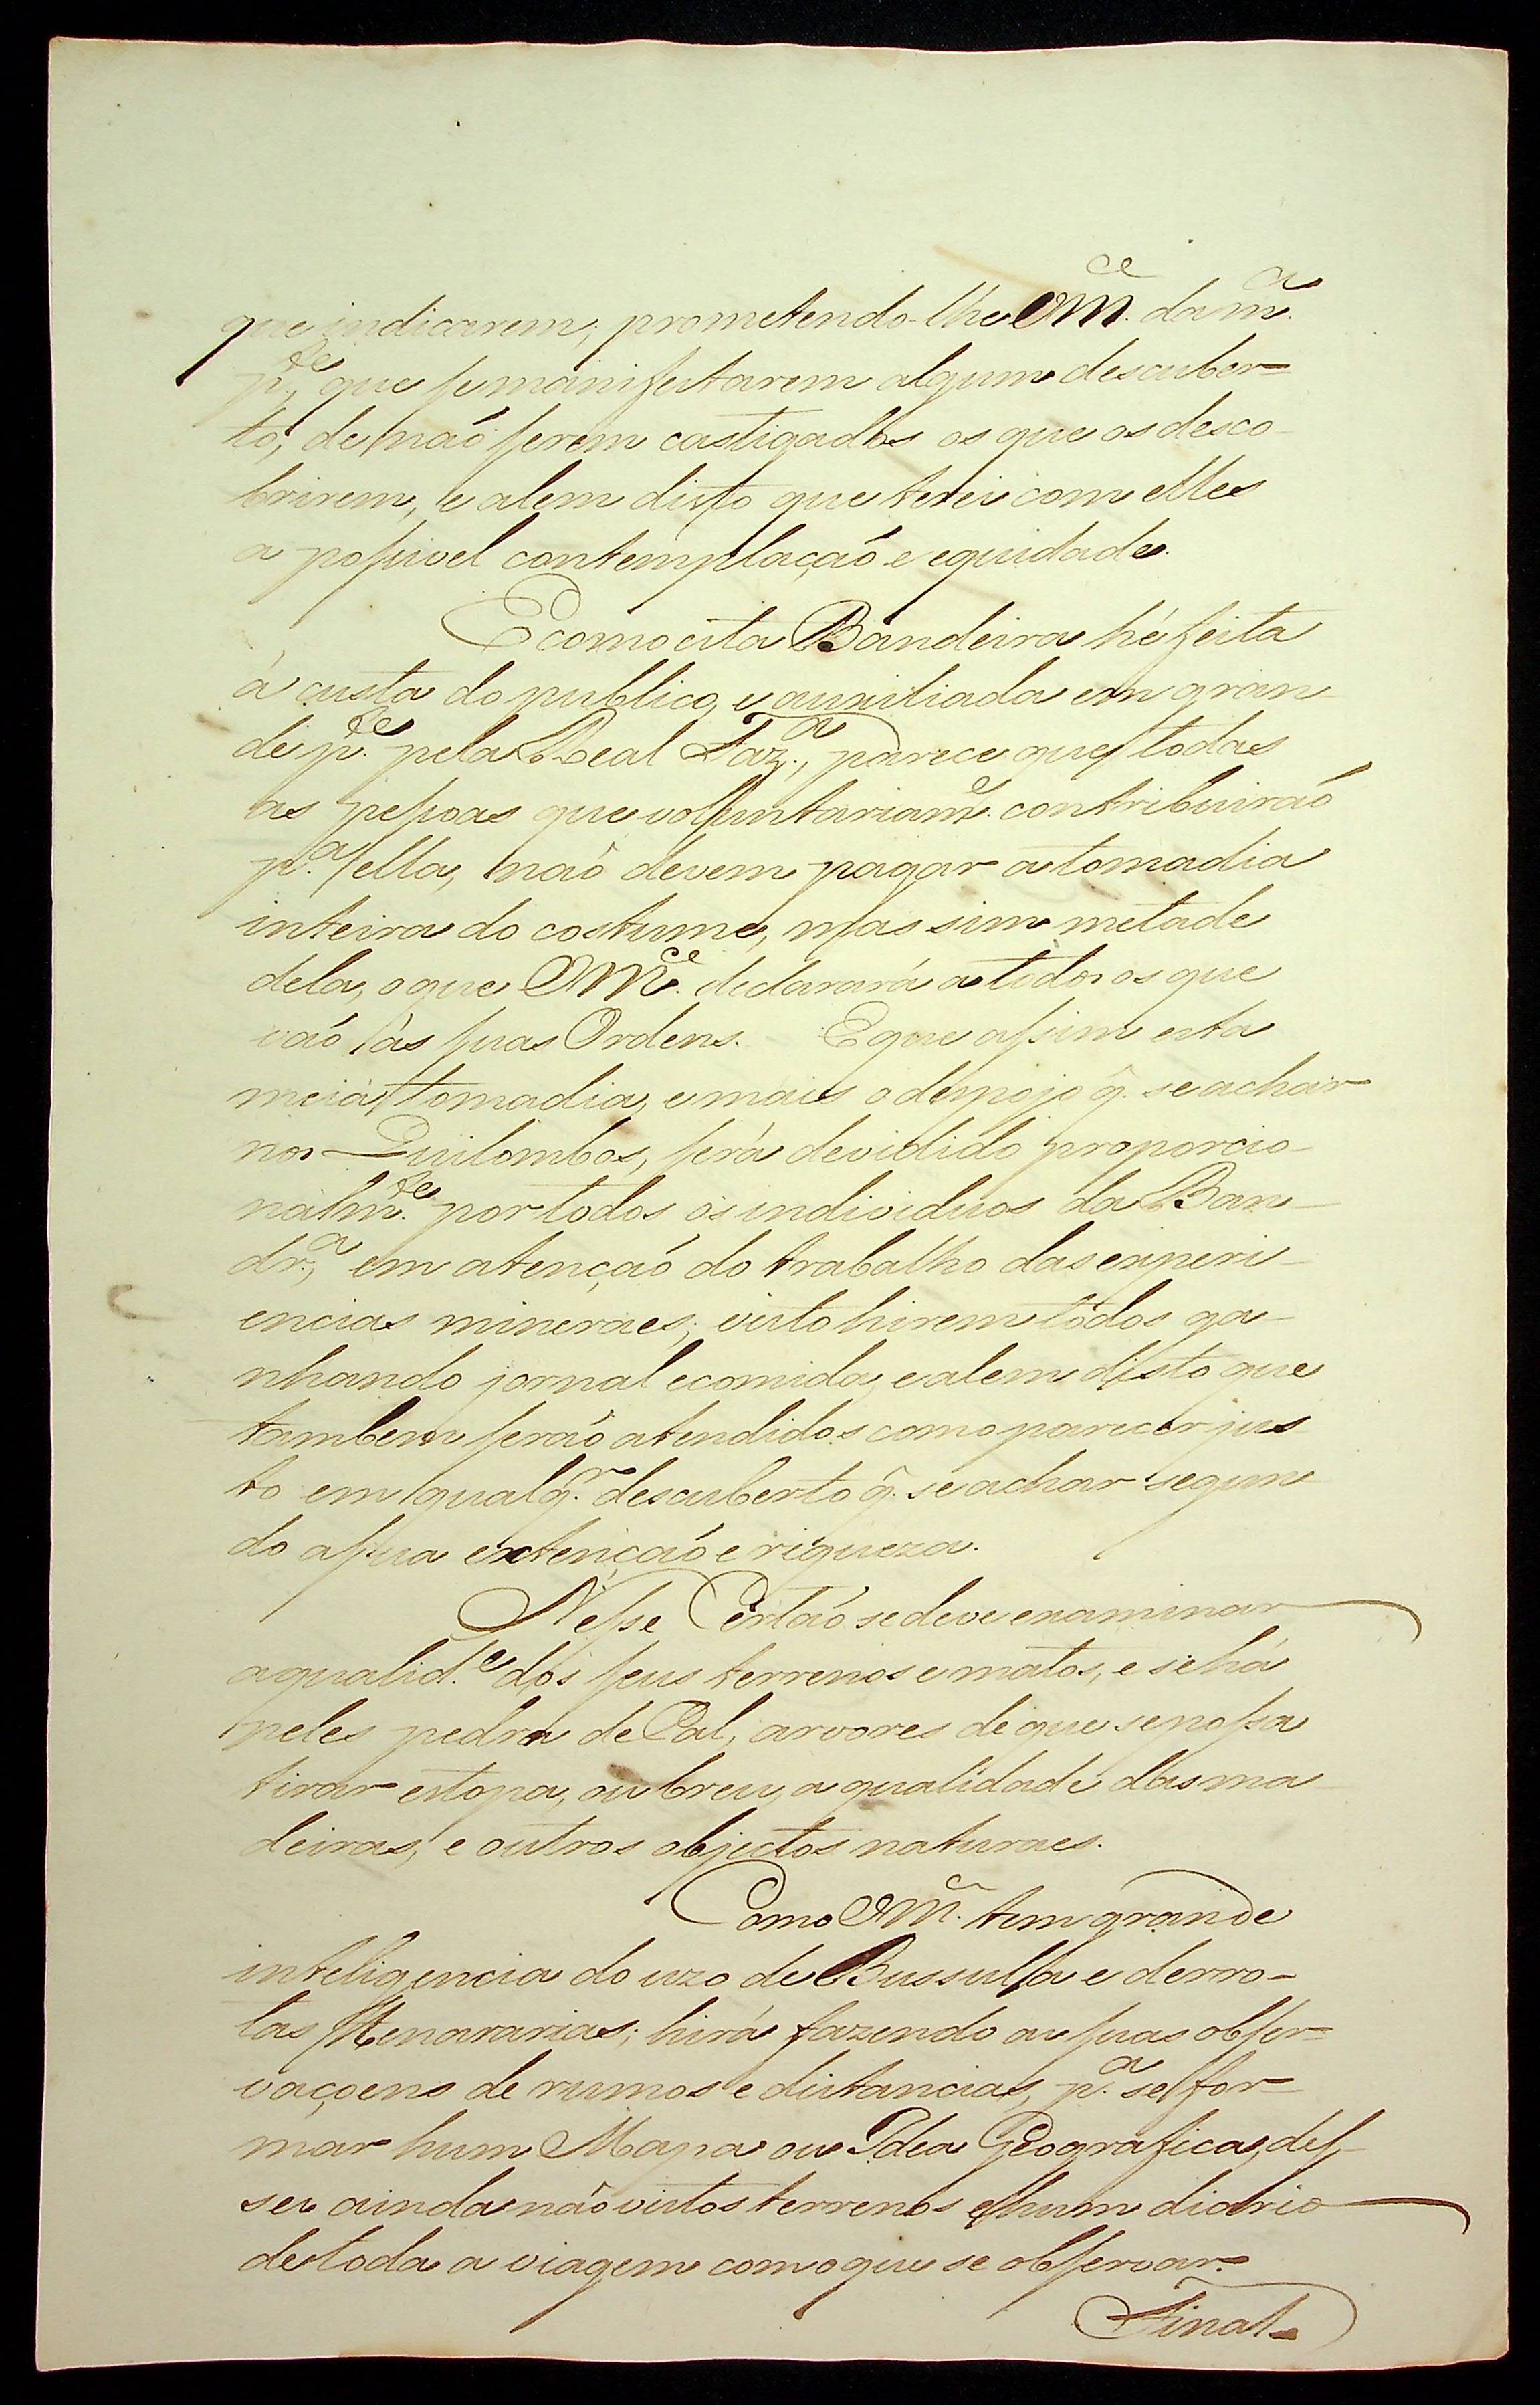 que indicarem, prometendo-lhe VM.ce da m.ma
p.te, que se manifestarem algum descuber-
to, de naó serem castigados os que os desco-
brirem, e alem disso que terei com elles
a possivel contemplaçaó e equidade.
E como esta Bandeira hé feita
á custa do publico, e auxiliada em gran
de p.te pela Real Faz.a, parece que todas
as pessoas que voluntariam.e contribuiraó
p.a ella, naó devem pagar a tomadia
inteira do costume, mas sim metade
dela, o que VM.ce declarará a todos os que
vaó ás suas Ordens. E que assim esta
meia tomadia, e mais o despojo q̃. se achar
nos Quilombos, será devidido proporcio-
nalm.te por todos os individuos da Ban-
dr.a, em atençaó do trabalho das experi-
encias mineraes; visto hirem todos ga-
nhando jornal e comida, e alem disto que
tambem seraó atendidos como parecer jus
to em qualq̃.r descuberto q̃. se achar segun
do a sua extençaó e riqueza.
Nesse Certaó se deve examinar
a qualid.e dos seus terrenos e matos, e se há
neles pedra de Cal, arvores de que se possa
tirar estopa, ou breu, a qualidade das ma
deiras, e outros objectos naturaes.
Como VM.ce tem grande
inteligencia do uzo de Bussulla e derro-
tas Itenararias; hirá fazendo as suas obser-
vaçoens de rumos e distancias, p.a se for-
mar hum Mapa ou Idea Geografica, des-
ses ainda não vistos terrenos e hum diario
de toda a viagem com o que se observar.
Final-